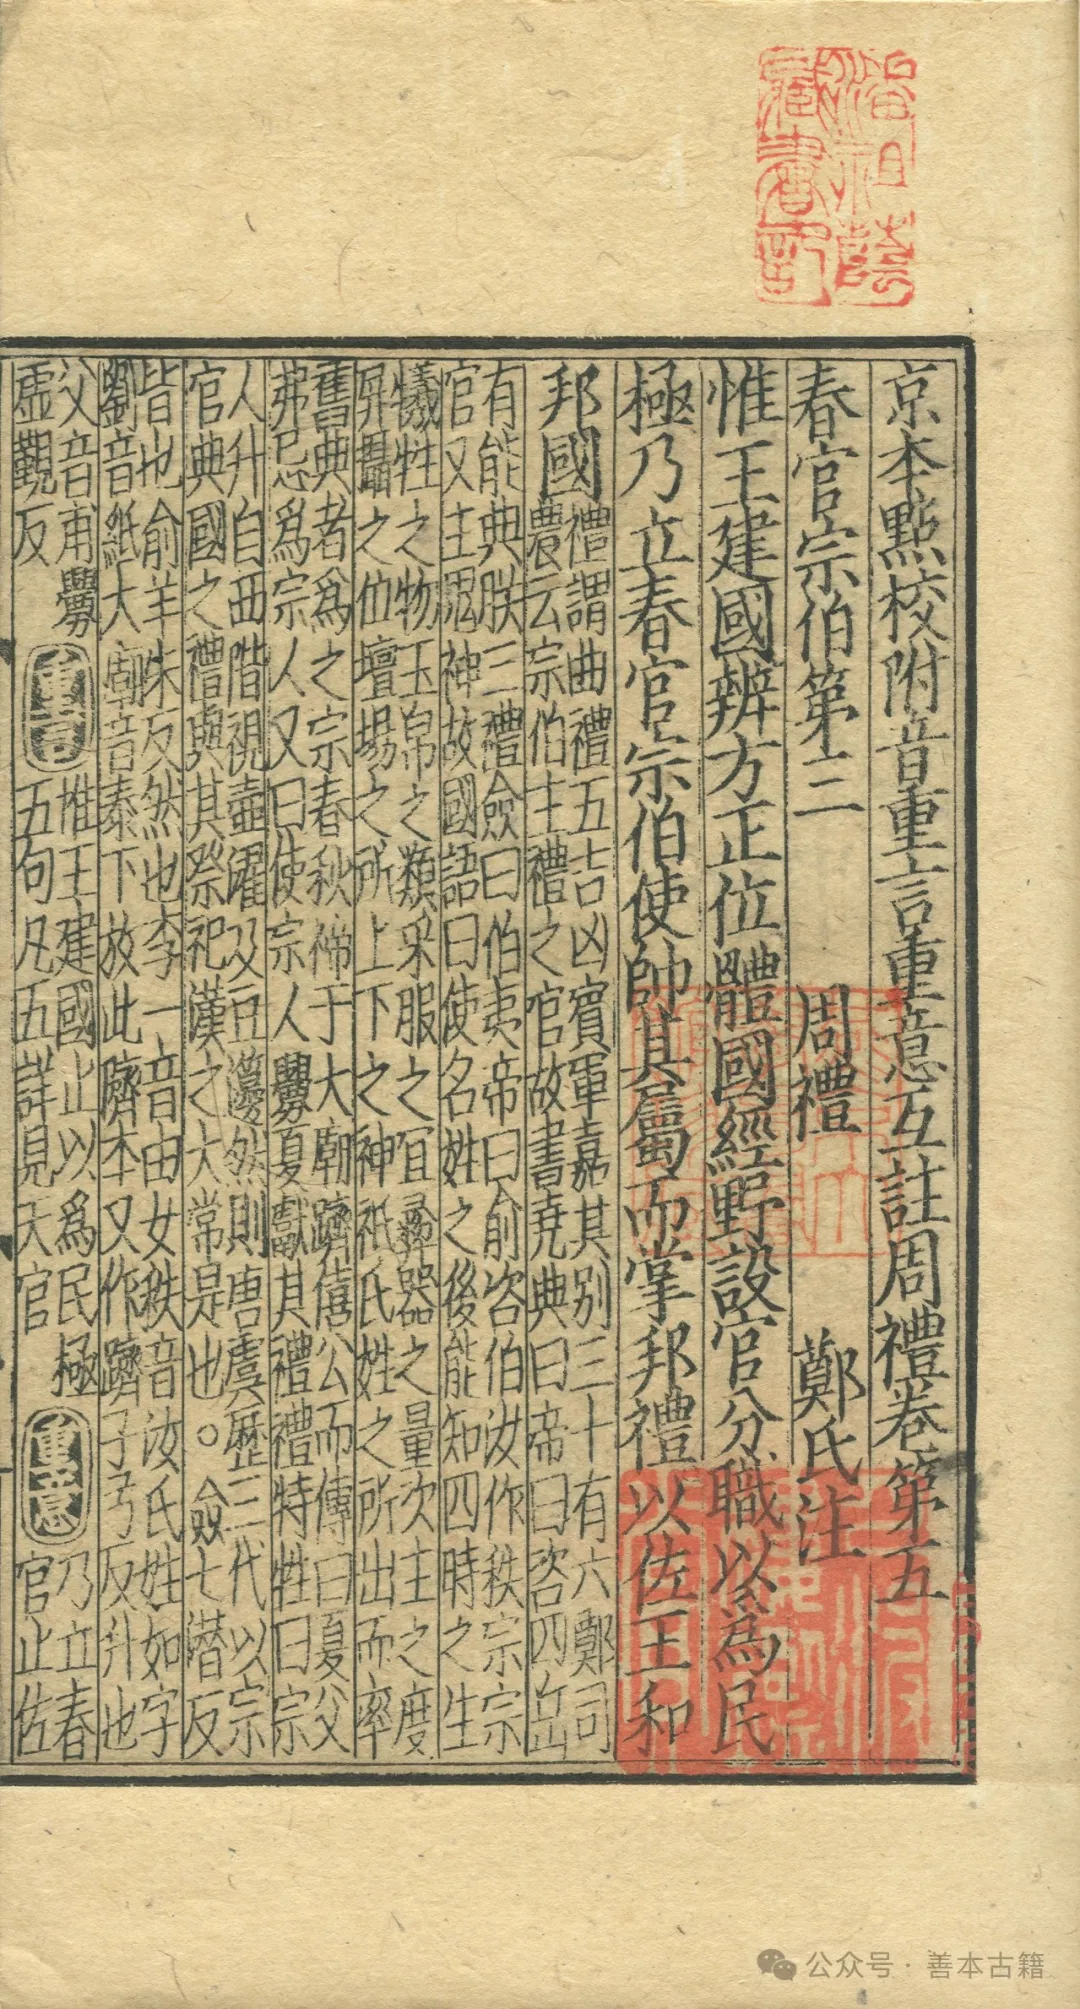 潘祖蔭
藏書記
京本點校附音重言重意互註周禮卷第五
春官宗伯第三　周禮　鄭氏注
惟王建國辨方正位體國經野設官分職以為民
極乃立春官宗伯使帥其屬而掌邦禮以佐王和
邦國
禮謂曲禮五吉凶賓軍嘉其别三十有六鄭司
農云宗伯主禮之官故書堯典曰帝曰咨四岳
有能典朕三禮僉曰伯夷帝曰俞咨伯汝作秩宗宗
官又主鬼神故國語曰使名姓之後能知四時之生
犧牲之物玉帛之類采服之宜彝器之量次主之度
屏攝之位壇場之所上下之神祇氏姓之所出而率
舊典者為之宗春秋禘于大廟躋僖公而傳曰夏父
弗忌為宗人又曰使宗人釁夏獻其禮禮特牲曰宗
人升自西階視壺濯及豆籩然則唐虞歷三代以宗
官典國之禮與其祭祀漢之大常是也○僉七潜反
皆也俞羊朱反然也李一音由女秩音汝氏姓如字
劉音紙大廟音泰下放此隮本又作躋子兮反升也
父音甫釁
虛觀反
重言
惟王建國止以為民極
五句凡五詳見天官
重意
乃立春
官止佐
公众号·善本古籍